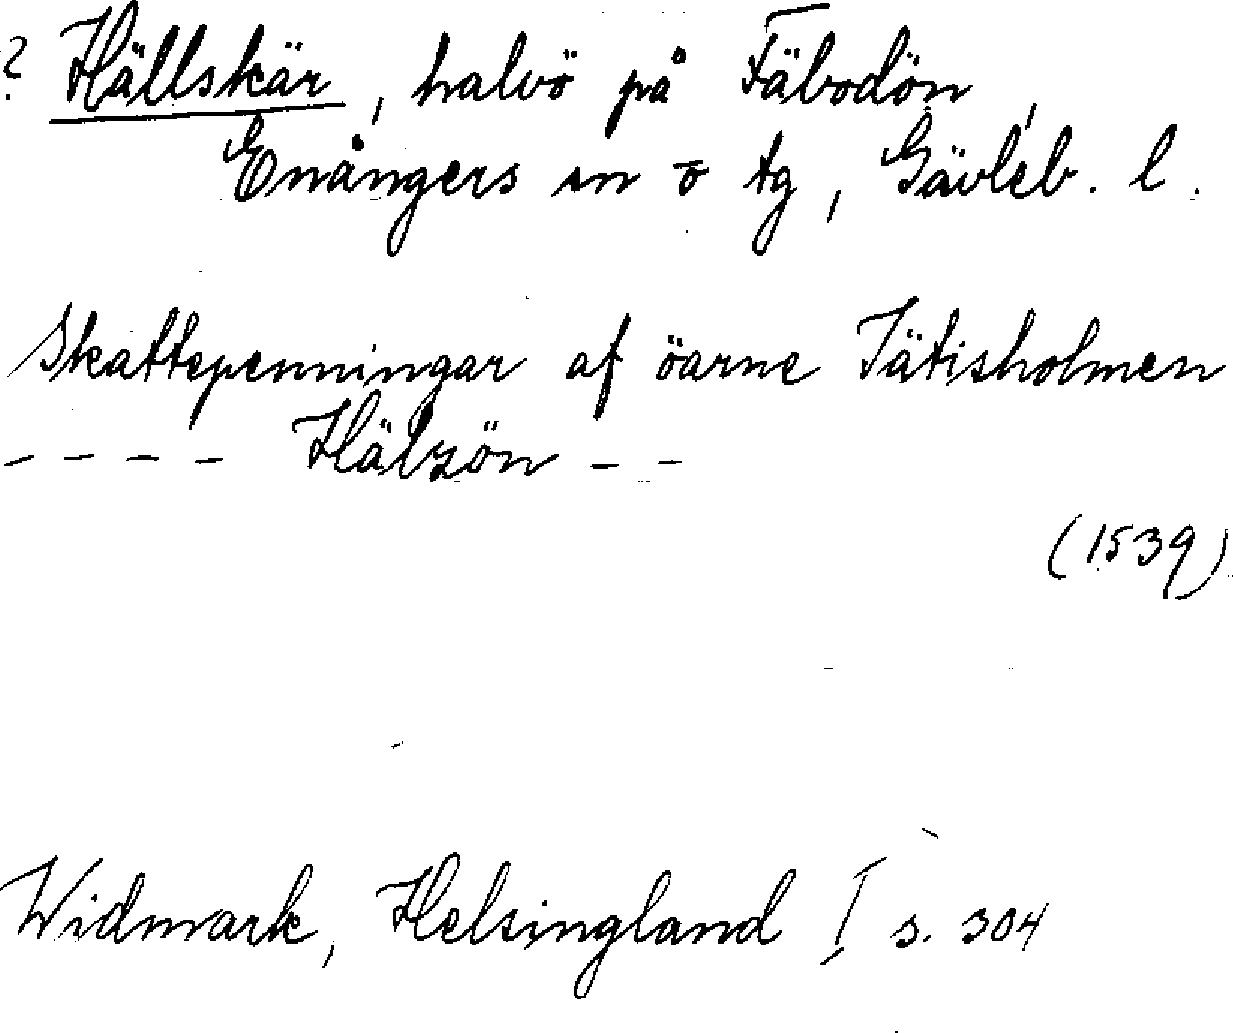 ? Hällskär, halvö på Fäbodön,
Enångers sn o tg, Gävleb. l.
Skattepenningar af öarne Tätisholmen
---- Hälsön --
(1539)
Widmark, Helsingland I s. 304